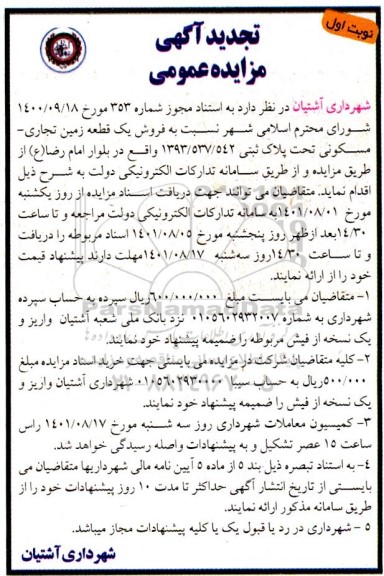 نوبت اول
تجدید آگهی
مزایده عمومی
شهرداری آشتیان در نظر دارد به استناد مجوز شماره ۳۵۳ مورخ ۱۴۰۰/۰۹/۱۸
شورای محترم اسلامی شهر نسبت به فروش یک قطعه زمین تجاری-
مسکونی تحت پلاک ثبتی ۱۳۹۳/۵۳۷/۵۴۲ واقع در بلوار امام رضا(ع) از
طریق مزایده و از طریق سامانه تدارکات الکترونیکی دولت به شرح ذیل
اقدام نماید. متقاضیان می توانند جهت دریافت اسناد مزایده از روز یکشنبه
مورخ ۱۴۰۱/۰۸/۰۱به سامانه تدارکات الکترونیکی دولت مراجعه و تا ساعت
۱۴/۳۰بعد ازظهر روز پنجشنبه مورخ ۱۴۰۱/۰۸/۰۵ اسناد مربوطه را دریافت
و تا ساعت ۱۴/۳۰روز سه‌شنبه ۱۴۰۱/۰۸/۱۷مهلت دارند پیشنهاد قیمت
خود را از ارائه نمایند.
۱- متقاضیان می بایست مبلغ ۶۰۰/۰۰۰/۰۰۰ریال سپرده به حساب سپرده
شهرداری به شماره ۰۱۰۵۶۰۲۹۳۲۰۰۷ نزد بانک ملی شعبه آشتیان واریز و
یک نسخه از فیش مربوطه را ضمیمه پیشنهاد خود نمایند.
۲- کلیه متقاضیان شرکت در مزایده می بایستی جهت خرید اسناد مزایده مبلغ
۵۰۰/۰۰۰ریال به حساب سیبا شهرداری آشتیان واریز و
یک نسخه از فیش را ضمیمه پیشنهاد خود نمایند.
۳- کمیسیون معاملات شهرداری روز سه شنبه مورخ ۱۴۰۱/۰۸/۱۷ راس
ساعت ۱۵ عصر تشکیل و به پیشنهادات واصله رسیدگی خواهد شد.
۴- به استناد تبصره ذیل بند ۵ از ماده ۵ آیین نامه مالی شهرداریها متقاضیان می
بایستی از تاریخ انتشار آگهی حداکثر تا مدت ۱۰ روز پیشنهادات خود را از
طریق سامانه مذکور ارائه نمایند.
۵ - شهرداری در رد یا قبول یک یا کلیه پیشنهادات مجاز میباشد.
شهرداری آشتیان